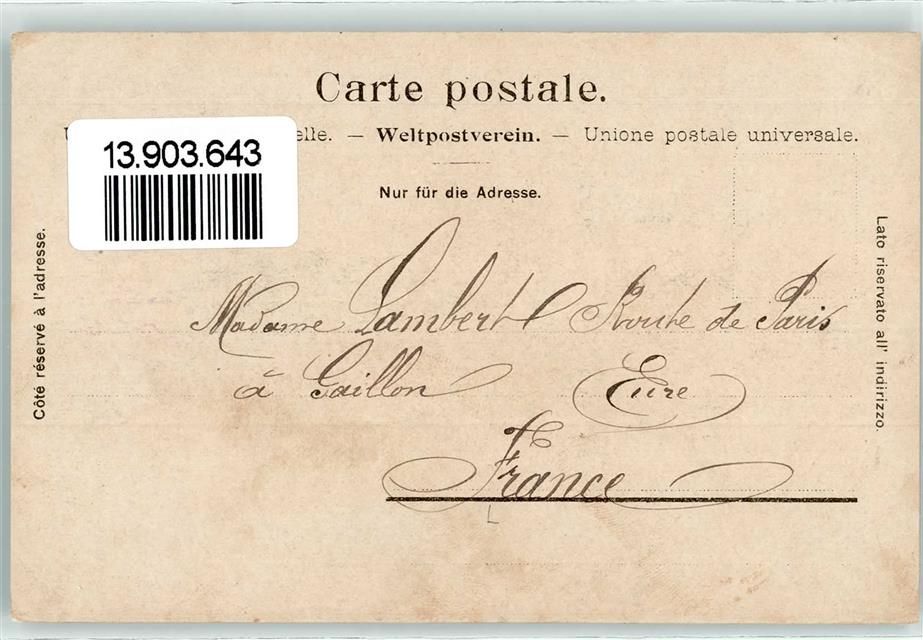 Carte postale.
elle. — Weltpostverein. — Unione postale universale.
13.903.643
Nur für die Adresse.
Côté réservé à l'adresse.
Lato riservato all' indirizzo.
Madame Lambert Route de Paris
à Gaillon Eure
France